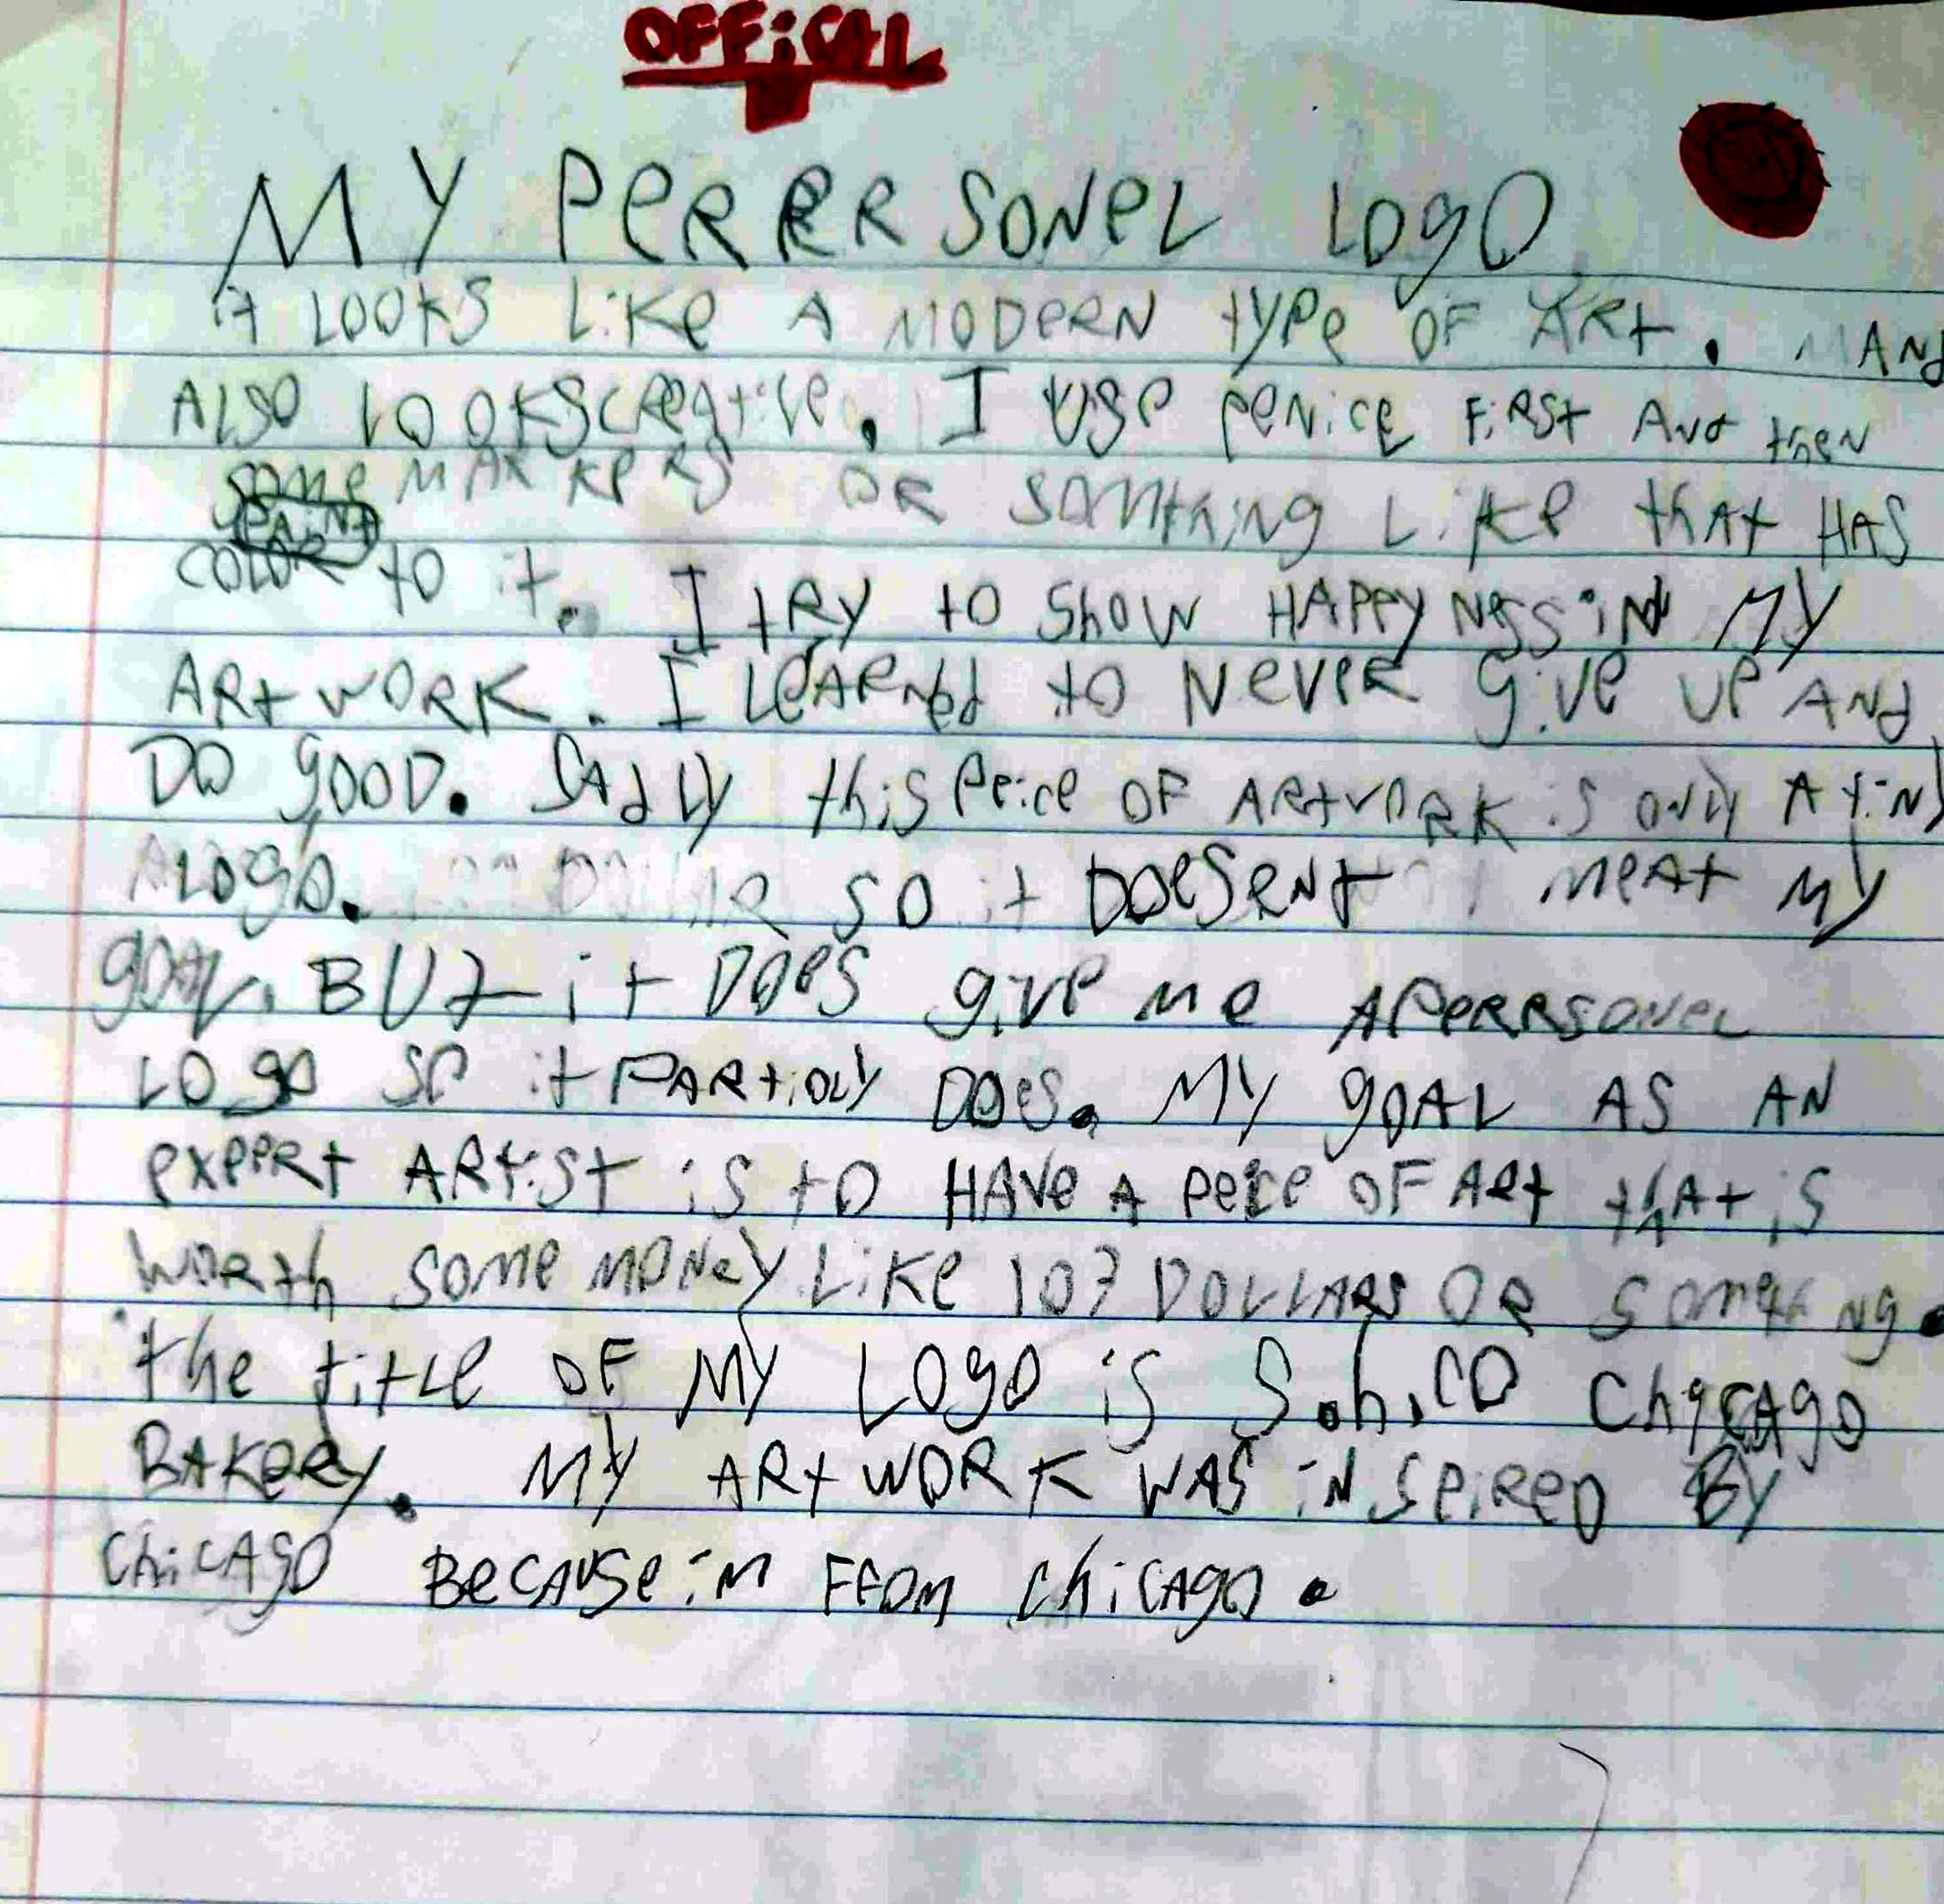 OFFiCAL
MY PERRRSONEL LOGO
it LOOKS LiKe A MODERN tyPe OF ARt. ANd
ALSO LOOKSCREAtive. I USe PeNice FiRSt And then
some MARKeRS OR SOMthiNg LiKe thAt HAS
COLOR to it. I tRy to Show HAPPyNessiN My
ARtwORK. I LeARNed to NeveR give UP ANd
DO gOOD. SAdLy this Peice OF ARtwORK is ONly A tiNy
LOgO. SO it DOeSeNt MeAt My
gOAL. BUt it DOeS give me APeRRSONeL
LOgO SO it PARtiOLy DOeS. My gOAL AS AN
exPeRt ARtiSt iS tO HAVe A Peice OF ARt thAt iS
WORth SOMe MONey LiKe 107 DOLLARS OR SOMethiNg.
the titLe OF My LOgO iS S.h.CO ChicAgO
BAKeRy. My ARtWORK WAS iNSPiReD By
ChiCAgO BeCAUSe iM FROM ChiCAgO.